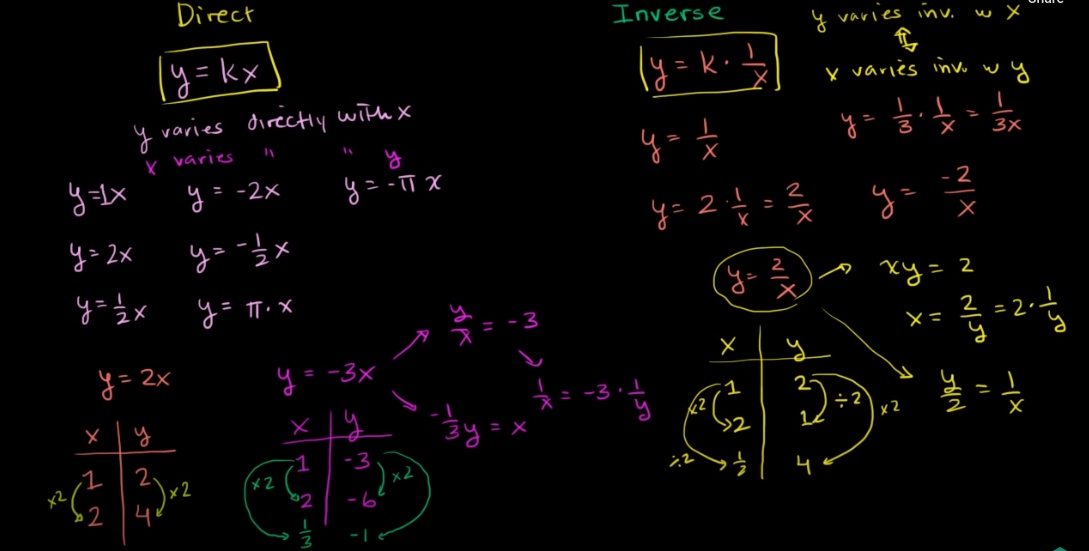 Share
Direct
y = kx
y varies directly with x
x varies " " y
y=1x y = -2x y = -π x
y = 2x y = -1/2 x
y = 1/2 x y = π · x
y = 2x
x y
1 2
2 4
×2 ×2
y = -3x
y/x = -3
1/x = -3 · 1/y
-1/3 y = x
x y
1 -3
2 -6
1/3 -1
×2 ×2
Inverse
y = k · 1/x
y varies inv. w x
⇕
x varies inv. w y
y = 1/x y = 1/3 · 1/x = 1/3x
y = 2 · 1/x = 2/x y = -2/x
y = 2/x
xy = 2
x = 2/y = 2 · 1/y
y/2 = 1/x
x y
1 2
2 1
1/2 4
×2 ÷2 ÷2 ×2